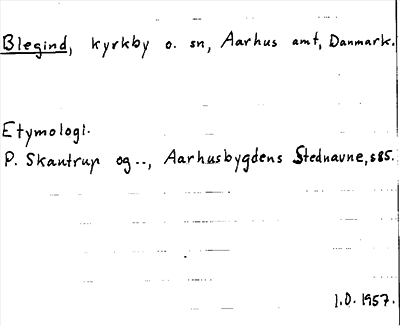 Blegind, kyrkby o. sn, Aarhus amt, Danmark.
Etymologi.
P. Skautrup og.., Aarhusbygdens Stednavne, s 85.
J.O. 1957.